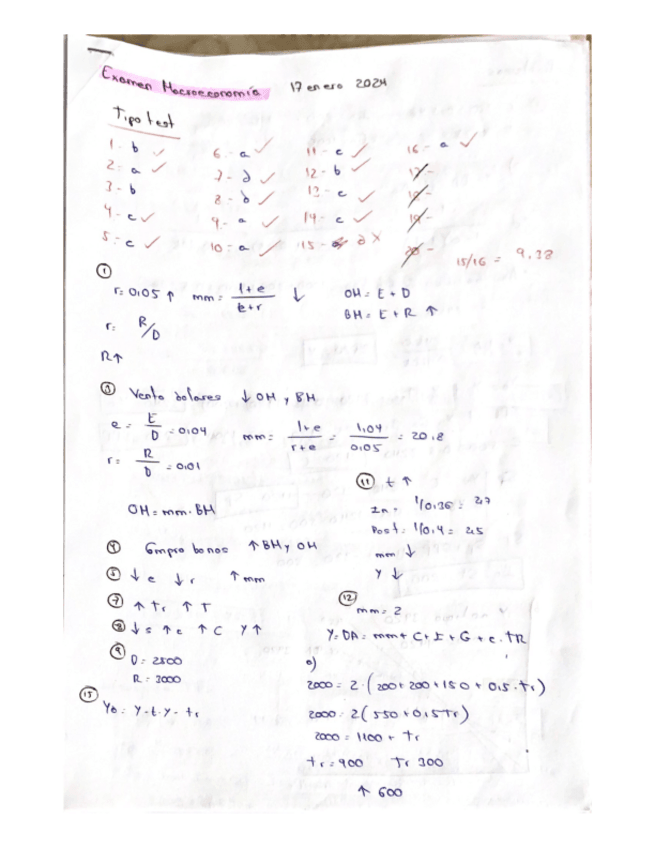 Examen Macroeconomía 17 enero 2024
Tipo test
1- b ✓ 6.- a ✓ 11- c ✓ 16- a ✓
2- a ✓ 7- d ✓ 12- b ✓ 17-
3- b 8- d ✓ 13- c ✓ 18-
4- c ✓ 9- a ✓ 14- c ✓ 19-
5- c ✓ 10- a ✓ 15- d × 20- 15/16 = 9.38
① r = 0'05 ↑ mm = 1+e / e+r ↓ OH = E + D
BH = E + R ↑
r = R/D
R↑
③ Venta dolares ↓ OH y BH
e = E/D = 0'04 mm = 1+e / r+e = 1,04 / 0'05 = 20.8
r = R/D = 0'01
OH = mm · BH
④ Compra bonos ↑ BH y OH
⑤ ↓ e ↓ r ↑ mm
⑦ ↑ Tr ↑ T
⑧ ↓ s ↑ c ↑ C Y ↑
⑨ D = 2500
R = 3000
⑮ YD = Y - t · Y - tr
⑪ t ↑
In = 1/0'36 = 2,7
Post = 1/0'4 = 2,5
mm ↓
Y ↓
⑫ mm = 2
Y = DA = mm + C + I + G + c · TR
2000 = 2 · (200 + 200 + 150 + 0,5 · Tr)
2000 = 2 (550 + 0,5 Tr)
2000 = 1100 + Tr
Tr = 900 Tr 300
↑ 600